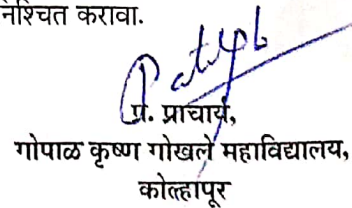 निश्चित करावा.
Patil
प्र. प्राचार्य,
गोपाळ कृष्ण गोखले महाविद्यालय,
कोल्हापूर